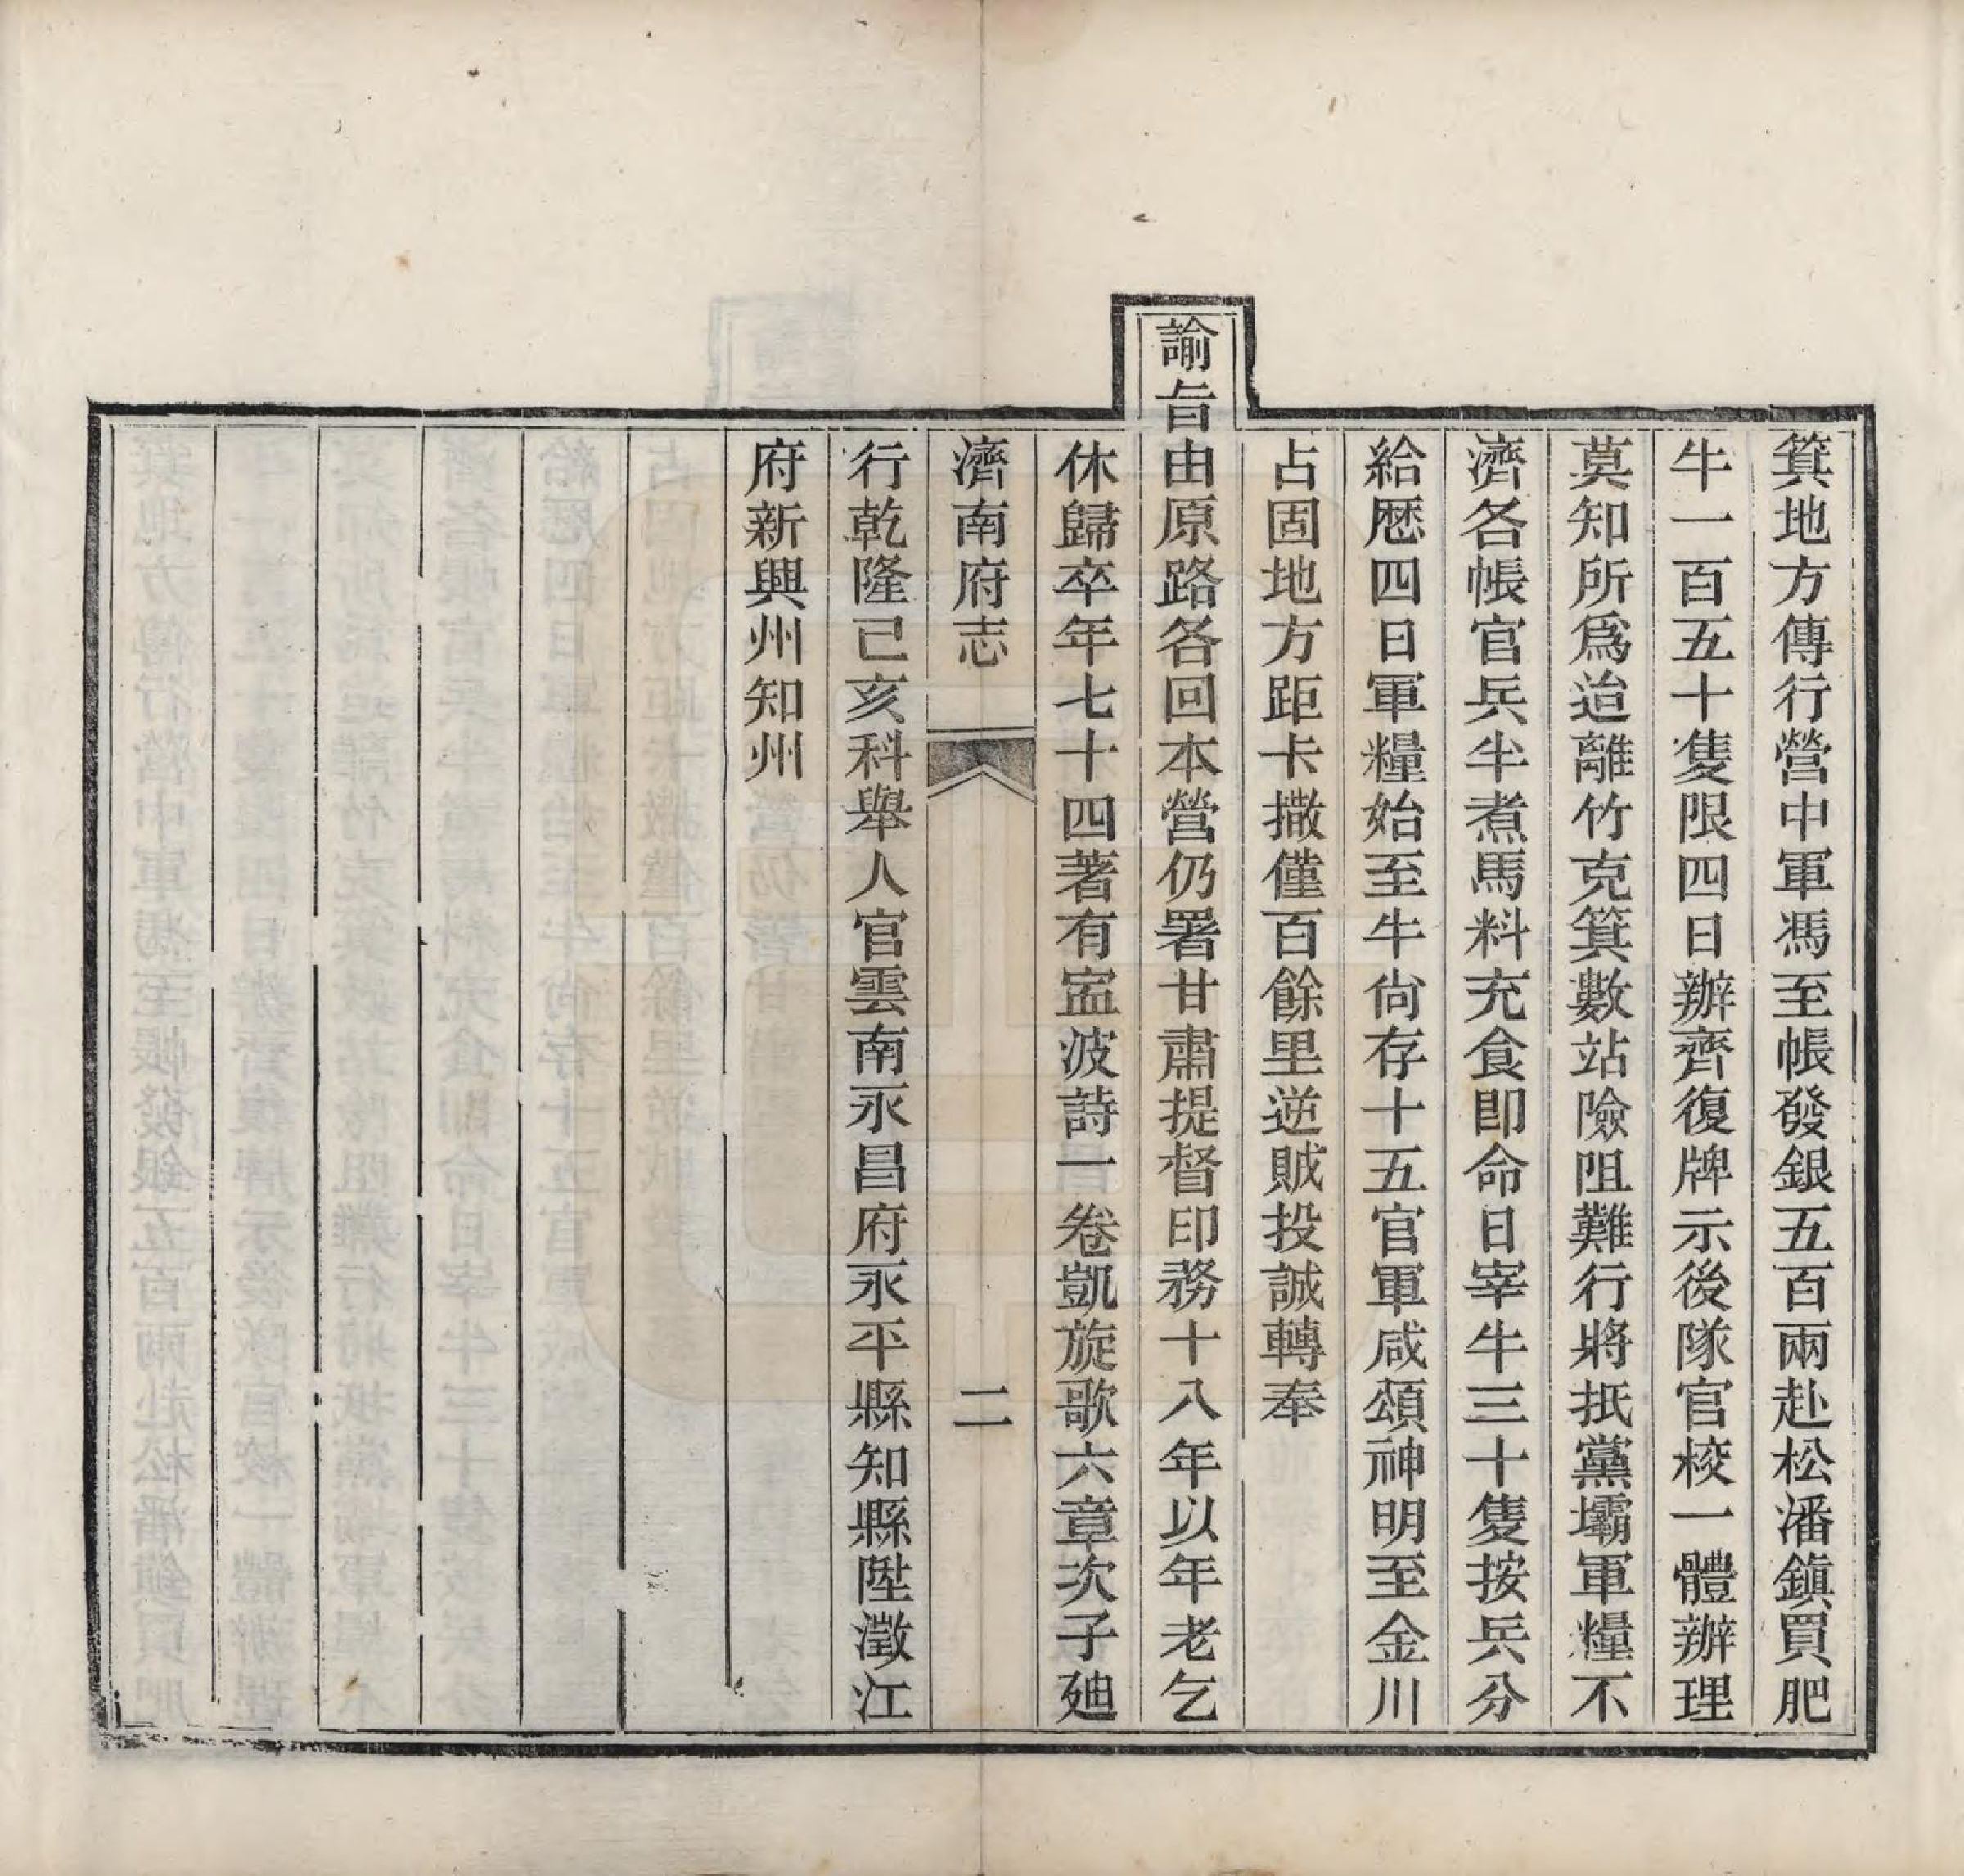 箕地方傳行營中軍馮至帳發銀五百兩赴松潘鎮買肥
牛一百五十隻限四日辦齊復牌示後隊官校一體辦理
莫知所爲迨離竹克箕數站險阻難行將抵黨壩軍糧不
濟各帳官兵半煮馬料充食即命日宰牛三十隻按兵分
給歷四日軍糧始至牛尙存十五官軍咸頌神明至金川
占固地方距卡撒僅百餘里逆賊投誠轉奉
諭旨由原路各回本營仍署甘肅提督印務十八年以年老乞
休歸卒年七十四著有寍波詩一卷凱旋歌六章次子廸
濟南府志 二
行乾隆己亥科舉人官雲南永昌府永平縣知縣陞澂江
府新興州知州